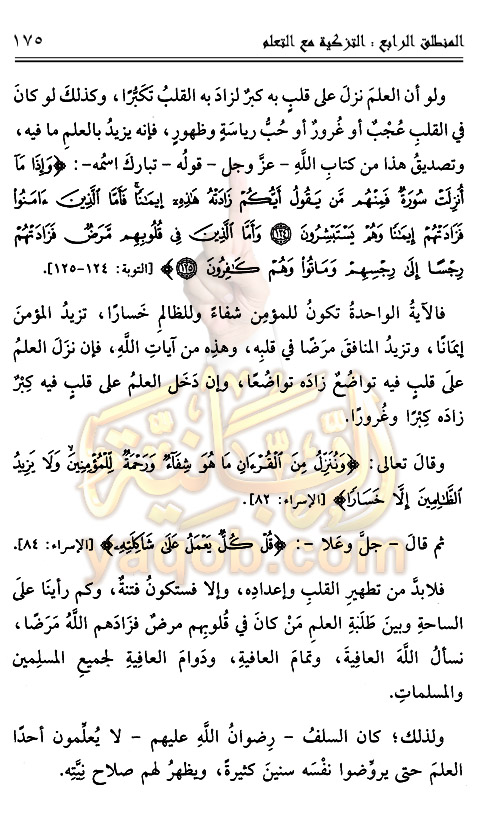 المنطلق الرابع : التزكية مع التعلم ١٧٥
ولو أن العلمَ نزلَ على قلبٍ به كبرٌ لزادَ به القلبُ تَكَبُّرًا، وكذلكَ لو كانَ
في القلبِ عُجْبٌ أو غُرورٌ أو حُبُّ رياسةٍ وظهورٍ، فإنه يزيدُ بالعلمِ ما فيه،
وتصديقُ هذا من كتابِ اللَّهِ - عزَّ وجل - قولُه - تباركَ اسمُه-: ﴿وَإِذَا مَآ
أُنزِلَتْ سُورَةٌ فَمِنْهُم مَّن يَقُولُ أَيُّكُمْ زَادَتْهُ هَٰذِهِۦٓ إِيمَٰنًا ۚ فَأَمَّا ٱلَّذِينَ ءَامَنُوا۟
فَزَادَتْهُمْ إِيمَٰنًا وَهُمْ يَسْتَبْشِرُونَ ۝١٢٤ وَأَمَّا ٱلَّذِينَ فِى قُلُوبِهِم مَّرَضٌ فَزَادَتْهُمْ
رِجْسًا إِلَىٰ رِجْسِهِمْ وَمَاتُوا۟ وَهُمْ كَٰفِرُونَ ۝١٢٥﴾ [التوبة: ١٢٤-١٢٥].
فالآيةُ الواحدةُ تكونُ للمؤمنِ شفاءً وللظالمِ خَسارًا، تزيدُ المؤمنَ
إيمَانًا، وتزيدُ المنافقَ مرَضًا في قلبِه، وهذِه من آياتِ اللَّهِ، فإن نزَلَ العلمُ
علَى قلبٍ فيه تواضُعٌ زادَه تواضُعًا، وإن دَخَل العلمُ على قلبٍ فيه كِبْرٌ
زاده كِبْرًا وغُرورًا.
وقالَ تعالى: ﴿وَنُنَزِّلُ مِنَ ٱلْقُرْءَانِ مَا هُوَ شِفَآءٌ وَرَحْمَةٌ لِّلْمُؤْمِنِينَ ۙ وَلَا يَزِيدُ
ٱلظَّٰلِمِينَ إِلَّا خَسَارًا﴾ [الإسراء: ٨٢].
ثم قالَ - جلَّ وعَلا -: ﴿قُلْ كُلٌّ يَعْمَلُ عَلَىٰ شَاكِلَتِهِۦ﴾ [الإسراء: ٨٤].
فلابدَّ من تطهيرِ القلبِ وإعدادِه، وإلا فستكونُ فتنةٌ، وكم رأينَا علَى
الساحةِ وبينَ طَلَبَةِ العلمِ مَنْ كانَ في قُلوبِهم مرضٌ فزادَهم اللَّهُ مَرضًا،
نسألُ اللَّهَ العافِيةَ، وتمَامَ العافيةِ، ودَوامَ العافيةِ لجميعِ المسلِمين
والمسلماتِ.
ولذلكَ؛ كان السلفُ - رِضوانُ اللَّهِ عليهم - لا يُعلِّمون أحدًا
العلمَ حتى يروِّضوا نفْسَه سنينَ كثيرةً، ويظهرُ لهم صلاح نِيَّتِه.
الربانية
yaqob.com